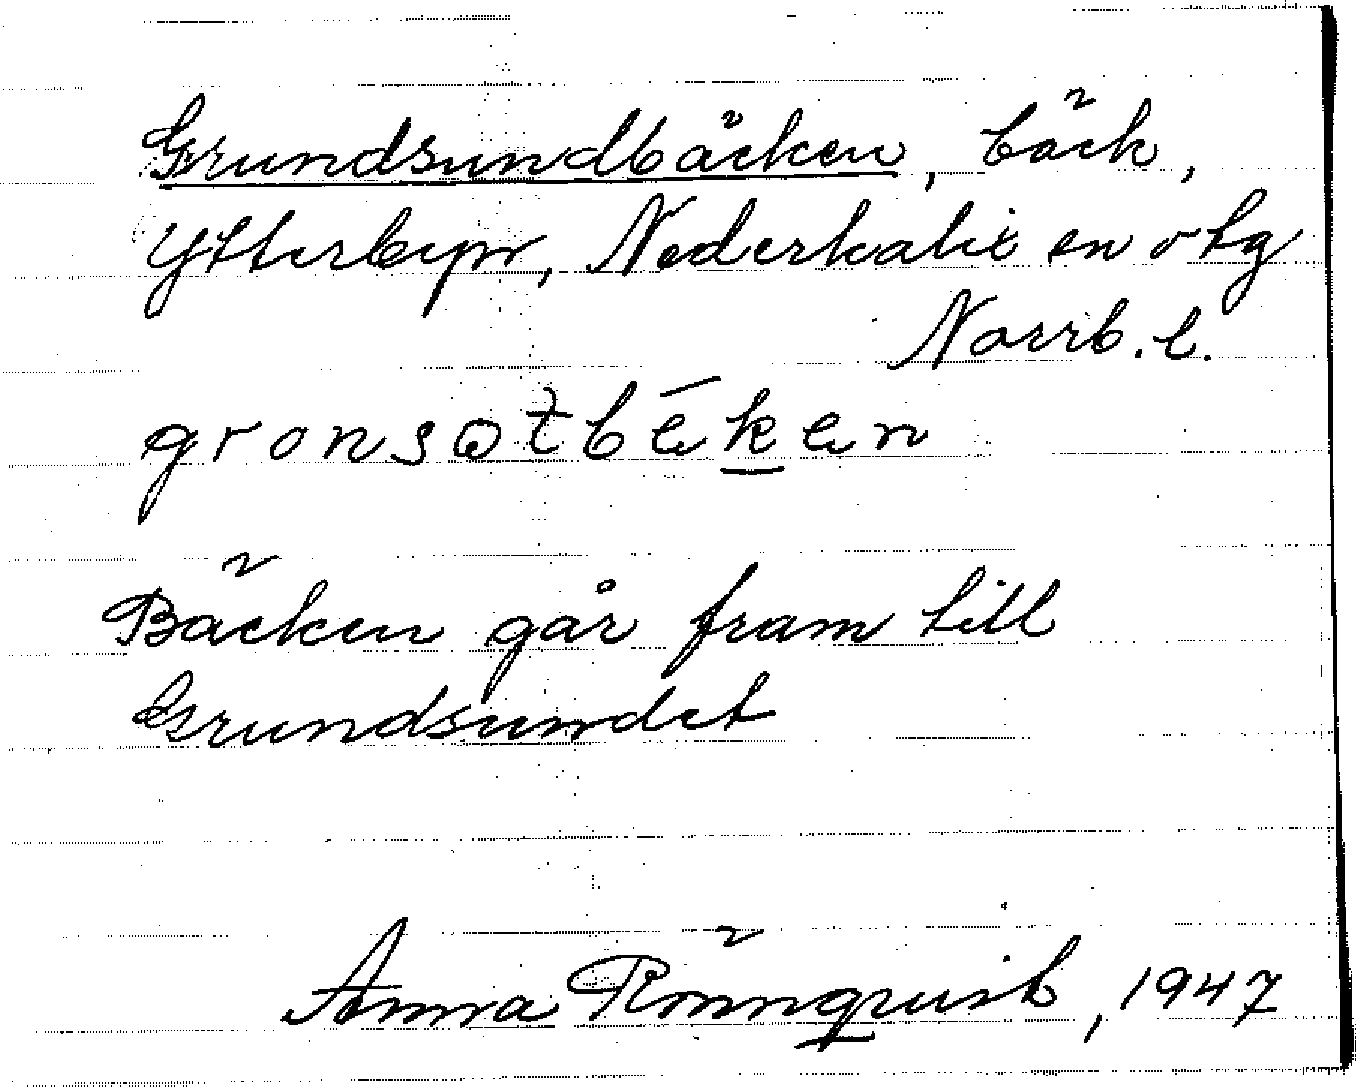 Grundsundbäcken, bäck,
Ytterbyn, Nederkalix sn o tg
Norrb. l.
gronsωtbēken
Bäcken går fram till
Grundsundet
Anna Rönnquist, 1947